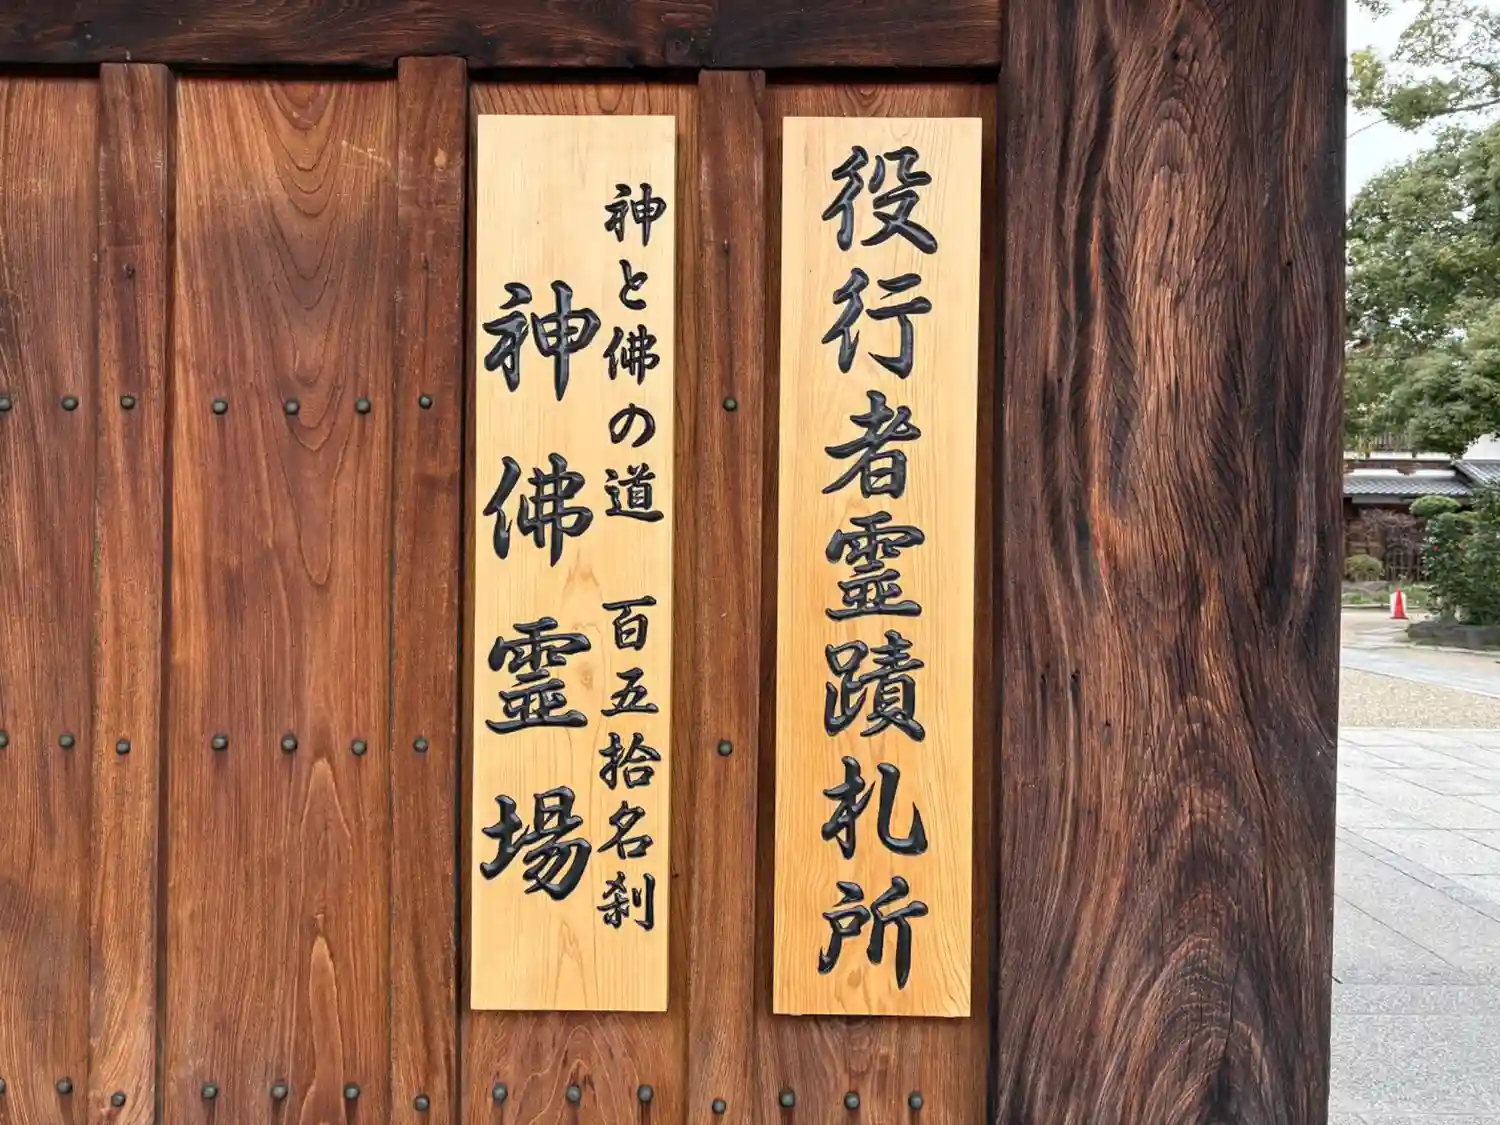 役行者霊蹟札所
神と佛の道 百五拾名刹
神佛霊場